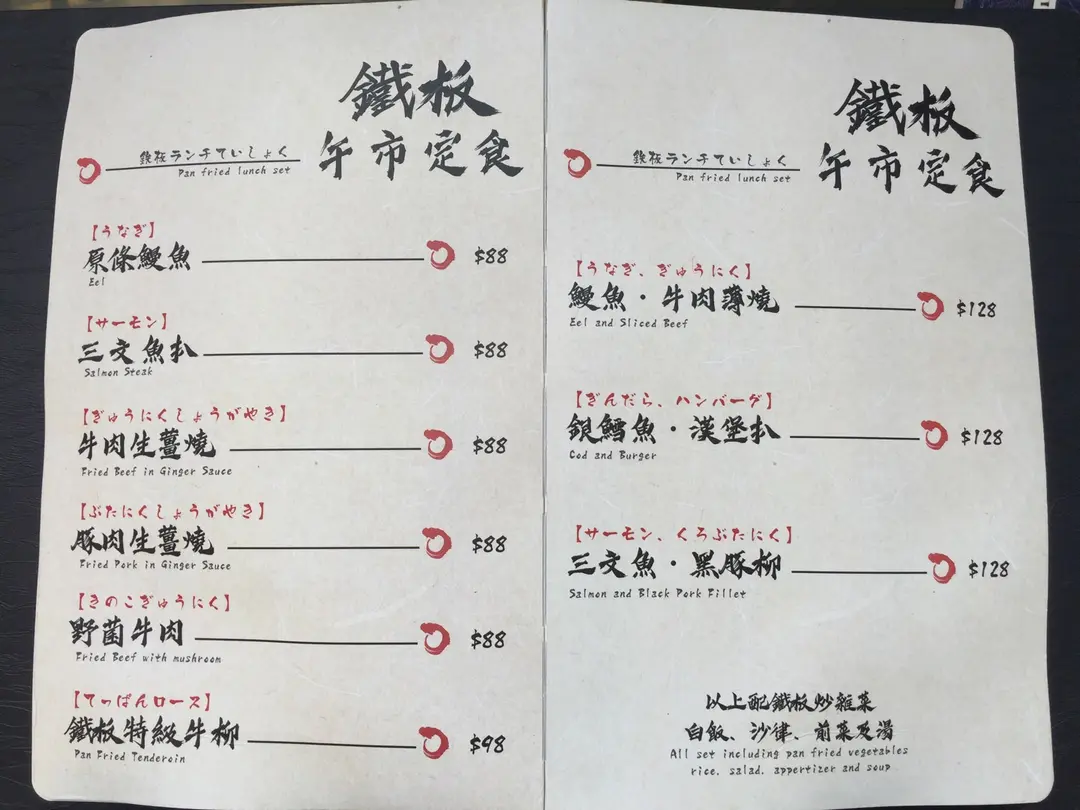 鐵板
午市定食
鉄板ランチていしょく
Pan fried lunch set
【うなぎ】
原條鰻魚 $88
Eel
【サーモン】
三文魚扒 $88
Salmon Steak
【ぎゅうにくしょうがやき】
牛肉生薑燒 $88
Fried Beef in Ginger Sauce
【ぶたにくしょうがやき】
豚肉生薑燒 $88
Fried Pork in Ginger Sauce
【きのこぎゅうにく】
野菌牛肉 $88
Fried Beef with mushroom
【てっぱんロース】
鐵板特級牛柳 $98
Pan Fried Tenderoin
鐵板
午市定食
鉄板ランチていしょく
Pan fried lunch set
【うなぎ、ぎゅうにく】
鰻魚・牛肉薄燒 $128
Eel and Sliced Beef
【ぎんだら、ハンバーグ】
銀鱈魚・漢堡扒 $128
Cod and Burger
【サーモン、くろぶたにく】
三文魚・黑豚柳 $128
Salmon and Black Pork Fillet
以上配鐵板炒雜菜
白飯、沙律、前菜及湯
All set including pan fried vegetables
rice, salad, appertizer and soup